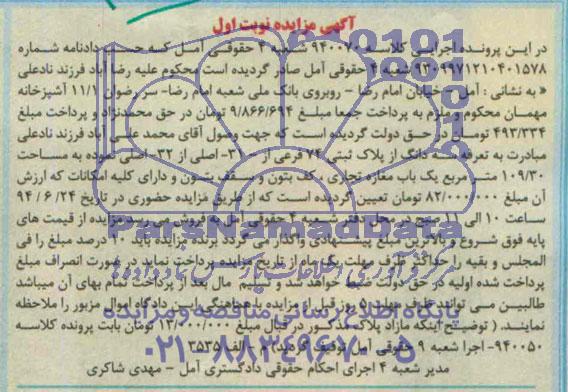 آگهی مزایده نوبت اول
در این پرونده اجرایی کلاسه ۹۴۰۰۷۰ شعبه ۴ حقوقی آمل که حسب دادنامه شماره
۹۳۰۹۹۷۱۲۱۰۴۰۱۵۷۸ شعبه ۴ حقوقی آمل صادر گردیده است محکوم علیه رضا آباد فرزند نادعلی
« به نشانی : آمل - خیابان امام رضا - روبروی بانک ملی شعبه امام رضا- سر رضوان ۱۱/۱ آشپزخانه
مهمان محکوم و ملزم به پرداخت جمعا مبلغ ۹/۸۶۶/۶۹۴ تومان در حق محمدنژاد و پرداخت مبلغ
۴۹۳/۳۳۴ تومان در حق دولت گردیده است که جهت وصول آقای محمد علی آباد فرزند نادعلی
مبادرت به تعرفه سه دانگ از پلاک ثبتی ۷۴ فرعی از ۳۱- اصلی از ۳۲- اصلی نموده به مساحت
۱۰۹/۳۰ متر مربع یک باب مغازه تجاری ، کف بتون و سقف بتون و دارای کلیه امکانات که ارزش
آن مبلغ ۸۲/۰۰۰/۰۰۰ تومان تعیین گردیده است که از طریق مزایده حضوری در تاریخ ۹۴/۶/۲۴
ساعت ۱۰ الی ۱۱ صبح در محل دفتر شعبه ۴ حقوقی آمل به فروش می رسد مزایده از قیمت های
پایه فوق شروع و بالاترین مبلغ پیشنهادی واگذار می گردد برنده مزایده باید ۱۰ درصد مبلغ را فی
المجلس و بقیه را حداکثر ظرف مهلت یک ماه از تاریخ مزایده پرداخت نماید در صورت انصراف مبلغ
پرداخت شده اولیه در حق دولت ضبط خواهد شد و تسلیم مال بعد از پرداخت تمام بهای آن میباشد
طالبین می توانند ظرف مهلت ۵ روز قبل از مزایده با هماهنگی این دادگاه اموال مزبور را ملاحظه
نمایند. ( توضیح اینکه مازاد پلاک مذکور در قبال مبلغ ۱۳/۰۰۰/۰۰۰ تومان بابت پرونده کلاسه
۹۴۰۰۵۰- اجرا شعبه ۹ حقوقی آمل توقیف گردید) م / الف ۳۵۳۵
مدیر شعبه ۴ اجرای احکام حقوقی دادگستری آمل - مهدی شاکری
ParsNamadData
مرکز فرآوری اطلاعات پارس نماد داده ها
پایگاه اطلاع رسانی مناقصه و مزایده
۰۲۱-۸۸۳۴۹۶۷۰-۵